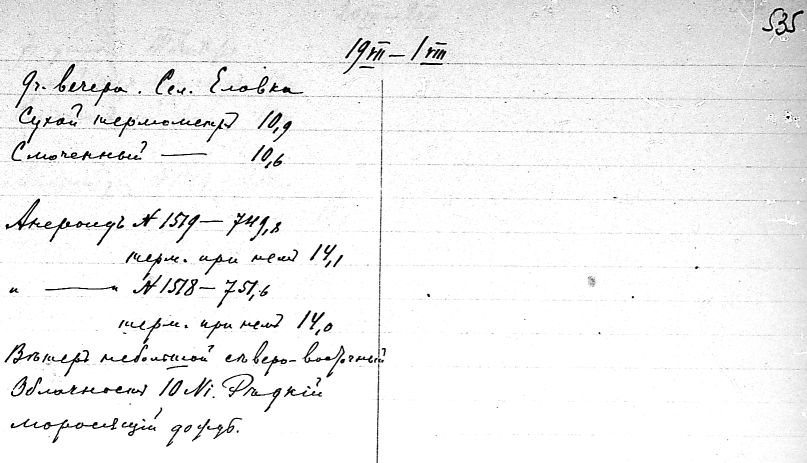 535
19 VII – 1 VIII
9 ч. вечера. Сел. Еловка
Сухой термометръ 10,9
Смоченный — 10,6
Анероидъ N 1519 — 749,8
терм. при немъ 14,1
" — " N 1518 — 751,6
терм. при немъ 14,0
Вѣтеръ небольшой сѣверо-восточный
Облачность 10 Ni. Рѣдкій
моросящій дождь.